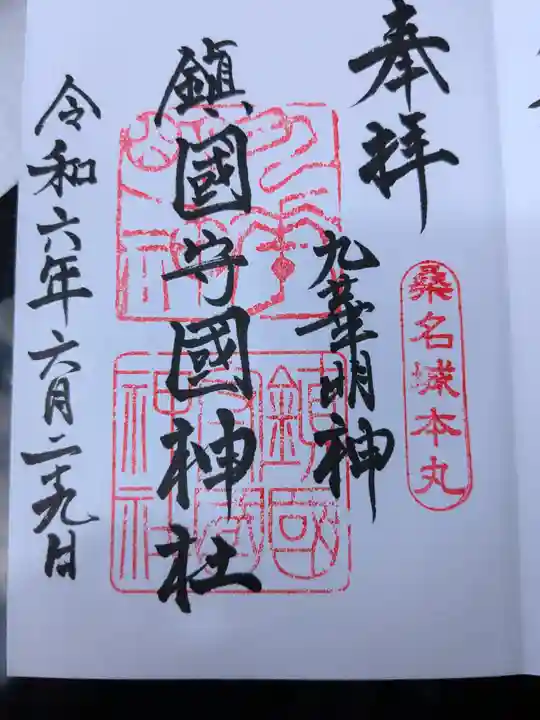 奉拝
桑名城本丸
九華明神
鎮國守國神社
九華明神
鎮國守國神社
令和六年六月二十九日